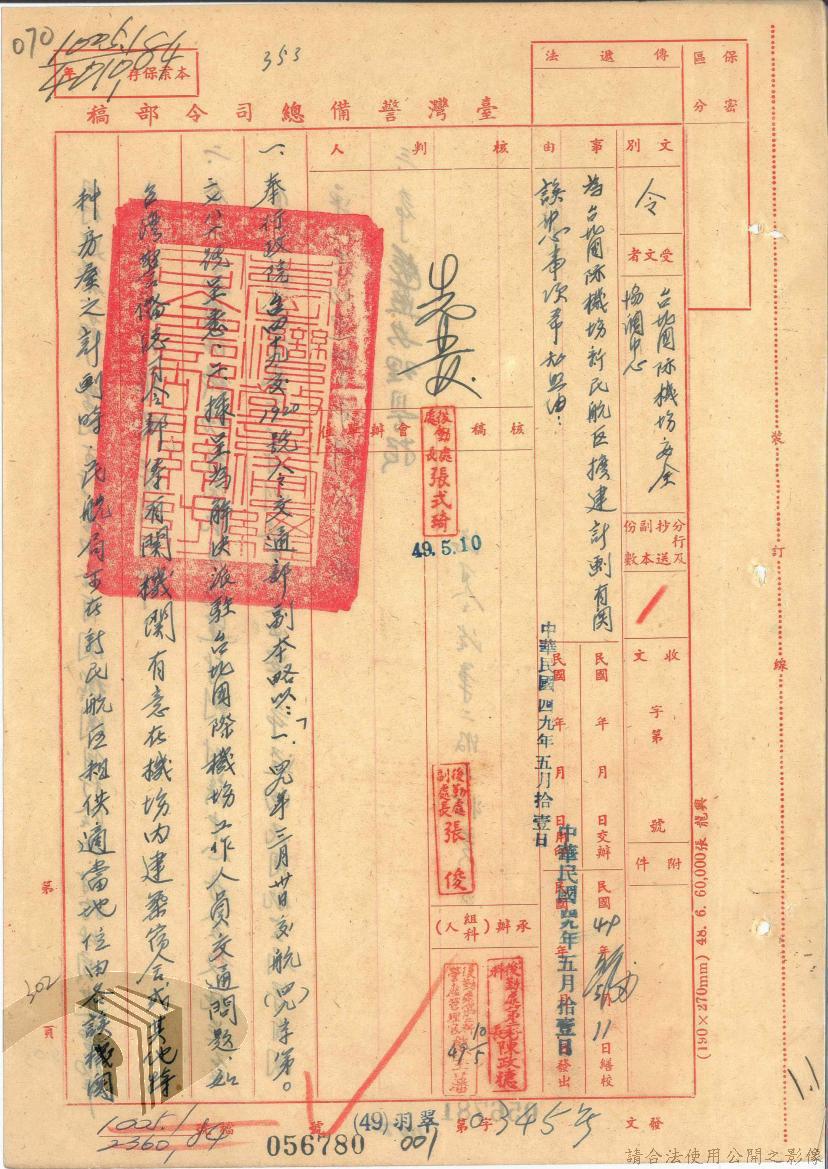 070
1005.1/84
353
本案保存 年
臺灣警備總司令部稿
保密區分
傳遞法
文別
令
受文者
台北國際機場安全協調中心
事由
為台北國際機場新民航區擴建計劃有関該中心事項希知照由：
分行及抄送副本份數
收文 字第 號
附件
核判人
會辦單位
核稿
後勤處處長張式琦
49.5.10
後勤處副處長張俊
承辦(組科人)
後勤處第 科科長陳政德
10/5
民國 年 月 日交辦
民國49年5月11日繕校
中華民國四九年五月拾壹日
中華民國四九年五月拾壹日
日發出
一、奉行政院台四十九交1920號令交通部副本略以：「一、49年三月卅日交航(49)字第
號呈悉。二、據呈為解決派駐台北國際機場工作人員交通問題，如
台灣警備總司令部等有関機關有意在機場內建築宿舍或其他特
種房屋之計劃時，民航局可在新民航區租供適當地位由各該機關
第302頁
裝訂線
(190×270mm) 48. 6. 60,000張 龍興
1.1
1005.1/84
2360.1
檔號
056780
(49)羽翠
001
字第0345號
發文
請合法使用公開之影像